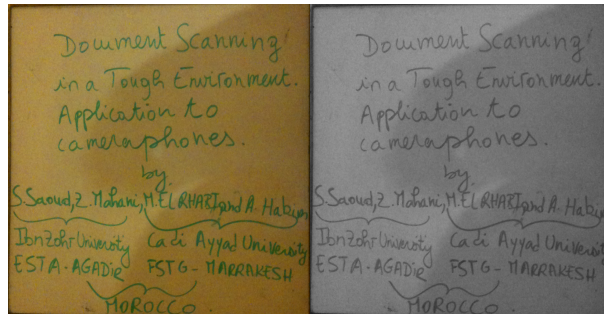 Document Scanning
in a Tough Environment.
Application to
cameraphones.
by
S.Saoud, Z. Mahani, M.EL RHABI, and A. Hakim
Ibn Zohr University
Cadi Ayyad University
ESTA - AGADir
FSTG - MARRAKESH
MOROCCO
Document Scanning
in a Tough Environment.
Application to
cameraphones.
by
S.Saoud, Z. Mahani, M.EL RHABI, and A. Hakim
Ibn Zohr University
Cadi Ayyad University
ESTA - AGADir
FSTG - MARRAKESH
MOROCCO